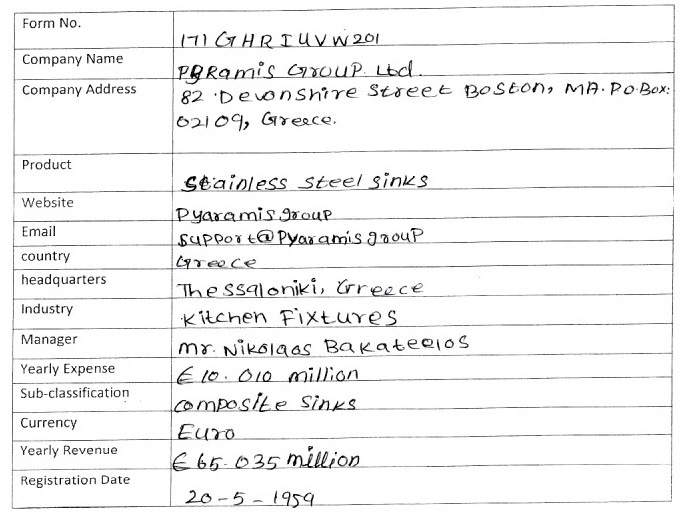 Form No. 171GHRIUVW201
Company Name PyRamis GROUP. Ltd.
Company Address 82 Devonshire Street Boston, MA. P.O.Box:
02109, Greece.
Product Stainless Steel Sinks
Website Pyaramisgroup
Email support@Pyaramisgroup
country Greece
headquarters Thessaloniki, Greece
Industry Kitchen Fixtures
Manager Mr. Nikolaos Bakatselos
Yearly Expense €10.010 million
Sub-classification composite Sinks
Currency Euro
Yearly Revenue €65.035 million
Registration Date 20-5-1959